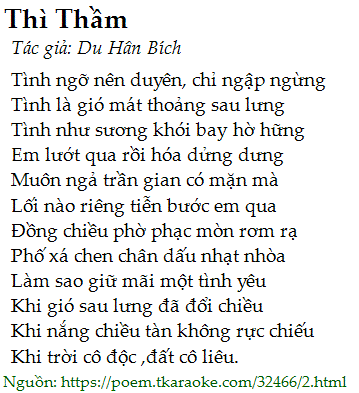 Thì Thầm
Tác giả: Du Hân Bích
Tình ngỡ nên duyên, chỉ ngập ngừng
Tình là gió mát thoảng sau lưng
Tình như sương khói bay hờ hững
Em lướt qua rồi hóa dửng dưng
Muôn ngả trần gian có mặn mà
Lối nào riêng tiễn bước em qua
Đồng chiều phờ phạc mòn rơm rạ
Phố xá chen chân dấu nhạt nhòa
Làm sao giữ mãi một tình yêu
Khi gió sau lưng đã đổi chiều
Khi nắng chiều tàn không rực chiếu
Khi trời cô độc ,đất cô liêu.
Nguồn: https://poem.tkaraoke.com/32466/2.html